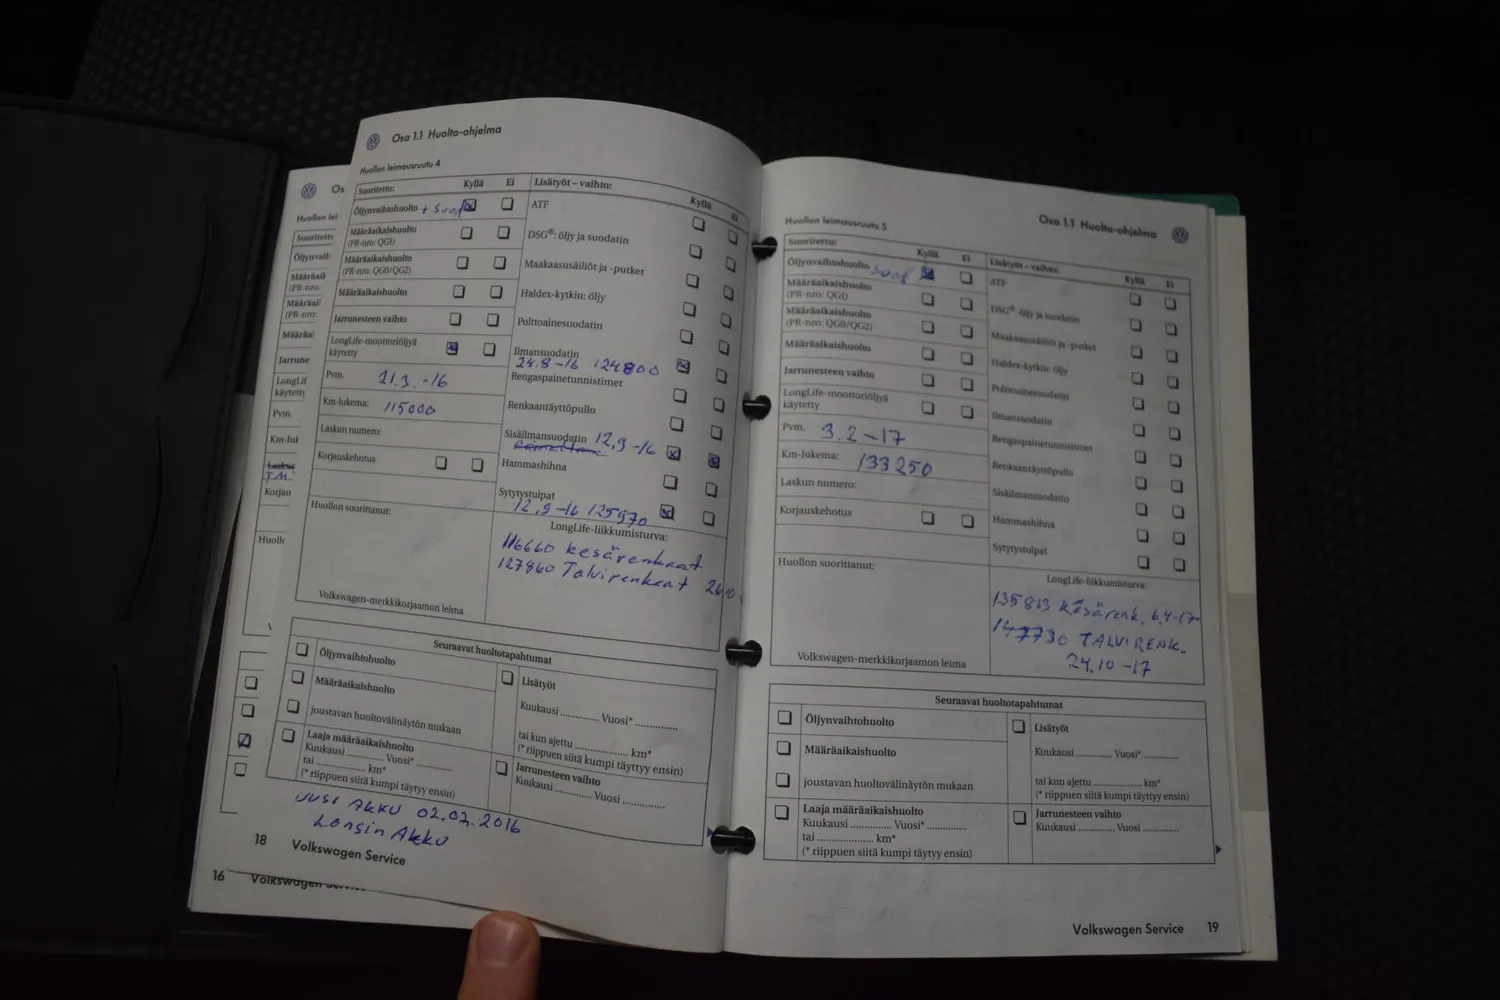 Osa 1.1 Huolto-ohjelma
Huollon leimausruutu 4
Suoritettu: Kyllä Ei
Öljynvaihtohuolto + Suod
Määräaikaishuolto
(PR-nro: QG1)
Määräaikaishuolto
(PR-nro: QG0/QG2)
Määräaikaishuolto
Jarrunesteen vaihto
LongLife-moottoriöljyä
käytetty
Pvm. 21.3.-16
Km-lukema: 115000
Laskun numero:
Korjauskehotus
Huollon suorittanut:
Volkswagen-merkkikorjaamon leima
Lisätyöt – vaihto: Kyllä Ei
ATF
DSG®: öljy ja suodatin
Maakaasusäiliöt ja -putket
Haldex-kytkin: öljy
Polttoainesuodatin
Ilmansuodatin
24.8-16 124800
Rengaspainetunnistimet
Renkaantäyttöpullo
Sisäilmansuodatin 12.9-16
Hammashihna
Sytytystulpat
12.9-16 125970
LongLife-liikkumisturva:
116660 kesärenkaat
127860 Talvirenkaat 26.10.
Seuraavat huoltotapahtumat
Öljynvaihtohuolto
Määräaikaishuolto
joustavan huoltovälinäytön mukaan
Laaja määräaikaishuolto
Kuukausi .............. Vuosi* ..............
tai .................... km*
(* riippuen siitä kumpi täytyy ensin)
Lisätyöt
Kuukausi .............. Vuosi* ..............
tai kun ajettu .................... km*
(* riippuen siitä kumpi täyttyy ensin)
Jarrunesteen vaihto
Kuukausi .............. Vuosi ..............
UUSI AKKU 02.02.2016
Longin Akku
18 Volkswagen Service
16 Volkswagen Service
Osa 1.1 Huolto-ohjelma
Huollon leimausruutu 5
Suoritettu: Kyllä Ei
Öljynvaihtohuolto suod
Määräaikaishuolto
(PR-nro: QG1)
Määräaikaishuolto
(PR-nro: QG0/QG2)
Määräaikaishuolto
Jarrunesteen vaihto
LongLife-moottoriöljyä
käytetty
Pvm. 3.2-17
Km-lukema: 133250
Laskun numero:
Korjauskehotus
Huollon suorittanut:
Volkswagen-merkkikorjaamon leima
Lisätyöt – vaihto: Kyllä Ei
ATF
DSG®: öljy ja suodatin
Maakaasusäiliöt ja -putket
Haldex-kytkin: öljy
Polttoainesuodatin
Ilmansuodatin
Rengaspainetunnistimet
Renkaantäyttöpullo
Sisäilmansuodatin
Hammashihna
Sytytystulpat
LongLife-liikkumisturva:
135813 Kesärenk. 6.4-17
147730 TALVIRENK.
24.10-17
Seuraavat huoltotapahtumat
Öljynvaihtohuolto
Määräaikaishuolto
joustavan huoltovälinäytön mukaan
Laaja määräaikaishuolto
Kuukausi .............. Vuosi* ..............
tai .................... km*
(* riippuen siitä kumpi täytyy ensin)
Lisätyöt
Kuukausi .............. Vuosi* ..............
tai kun ajettu .................... km*
(* riippuen siitä kumpi täyttyy ensin)
Jarrunesteen vaihto
Kuukausi .............. Vuosi ..............
Volkswagen Service 19